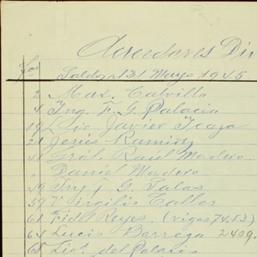 Acreedores Div
Fos
Saldos 31 Mayo 1945
2 Max. Calvillo
4 Ing. F. G. Palacio
19 Lic. Javier Icaza
21 Jesús Ramirez
Gral. Raul Madero
" Daniel Madero
Ing. J. G. Valas
57 Virgilio Calles
61 Fidel Reyes (vigas 74, 53)
64 Lucio Barraga 2409
65 Lic. del Palacio